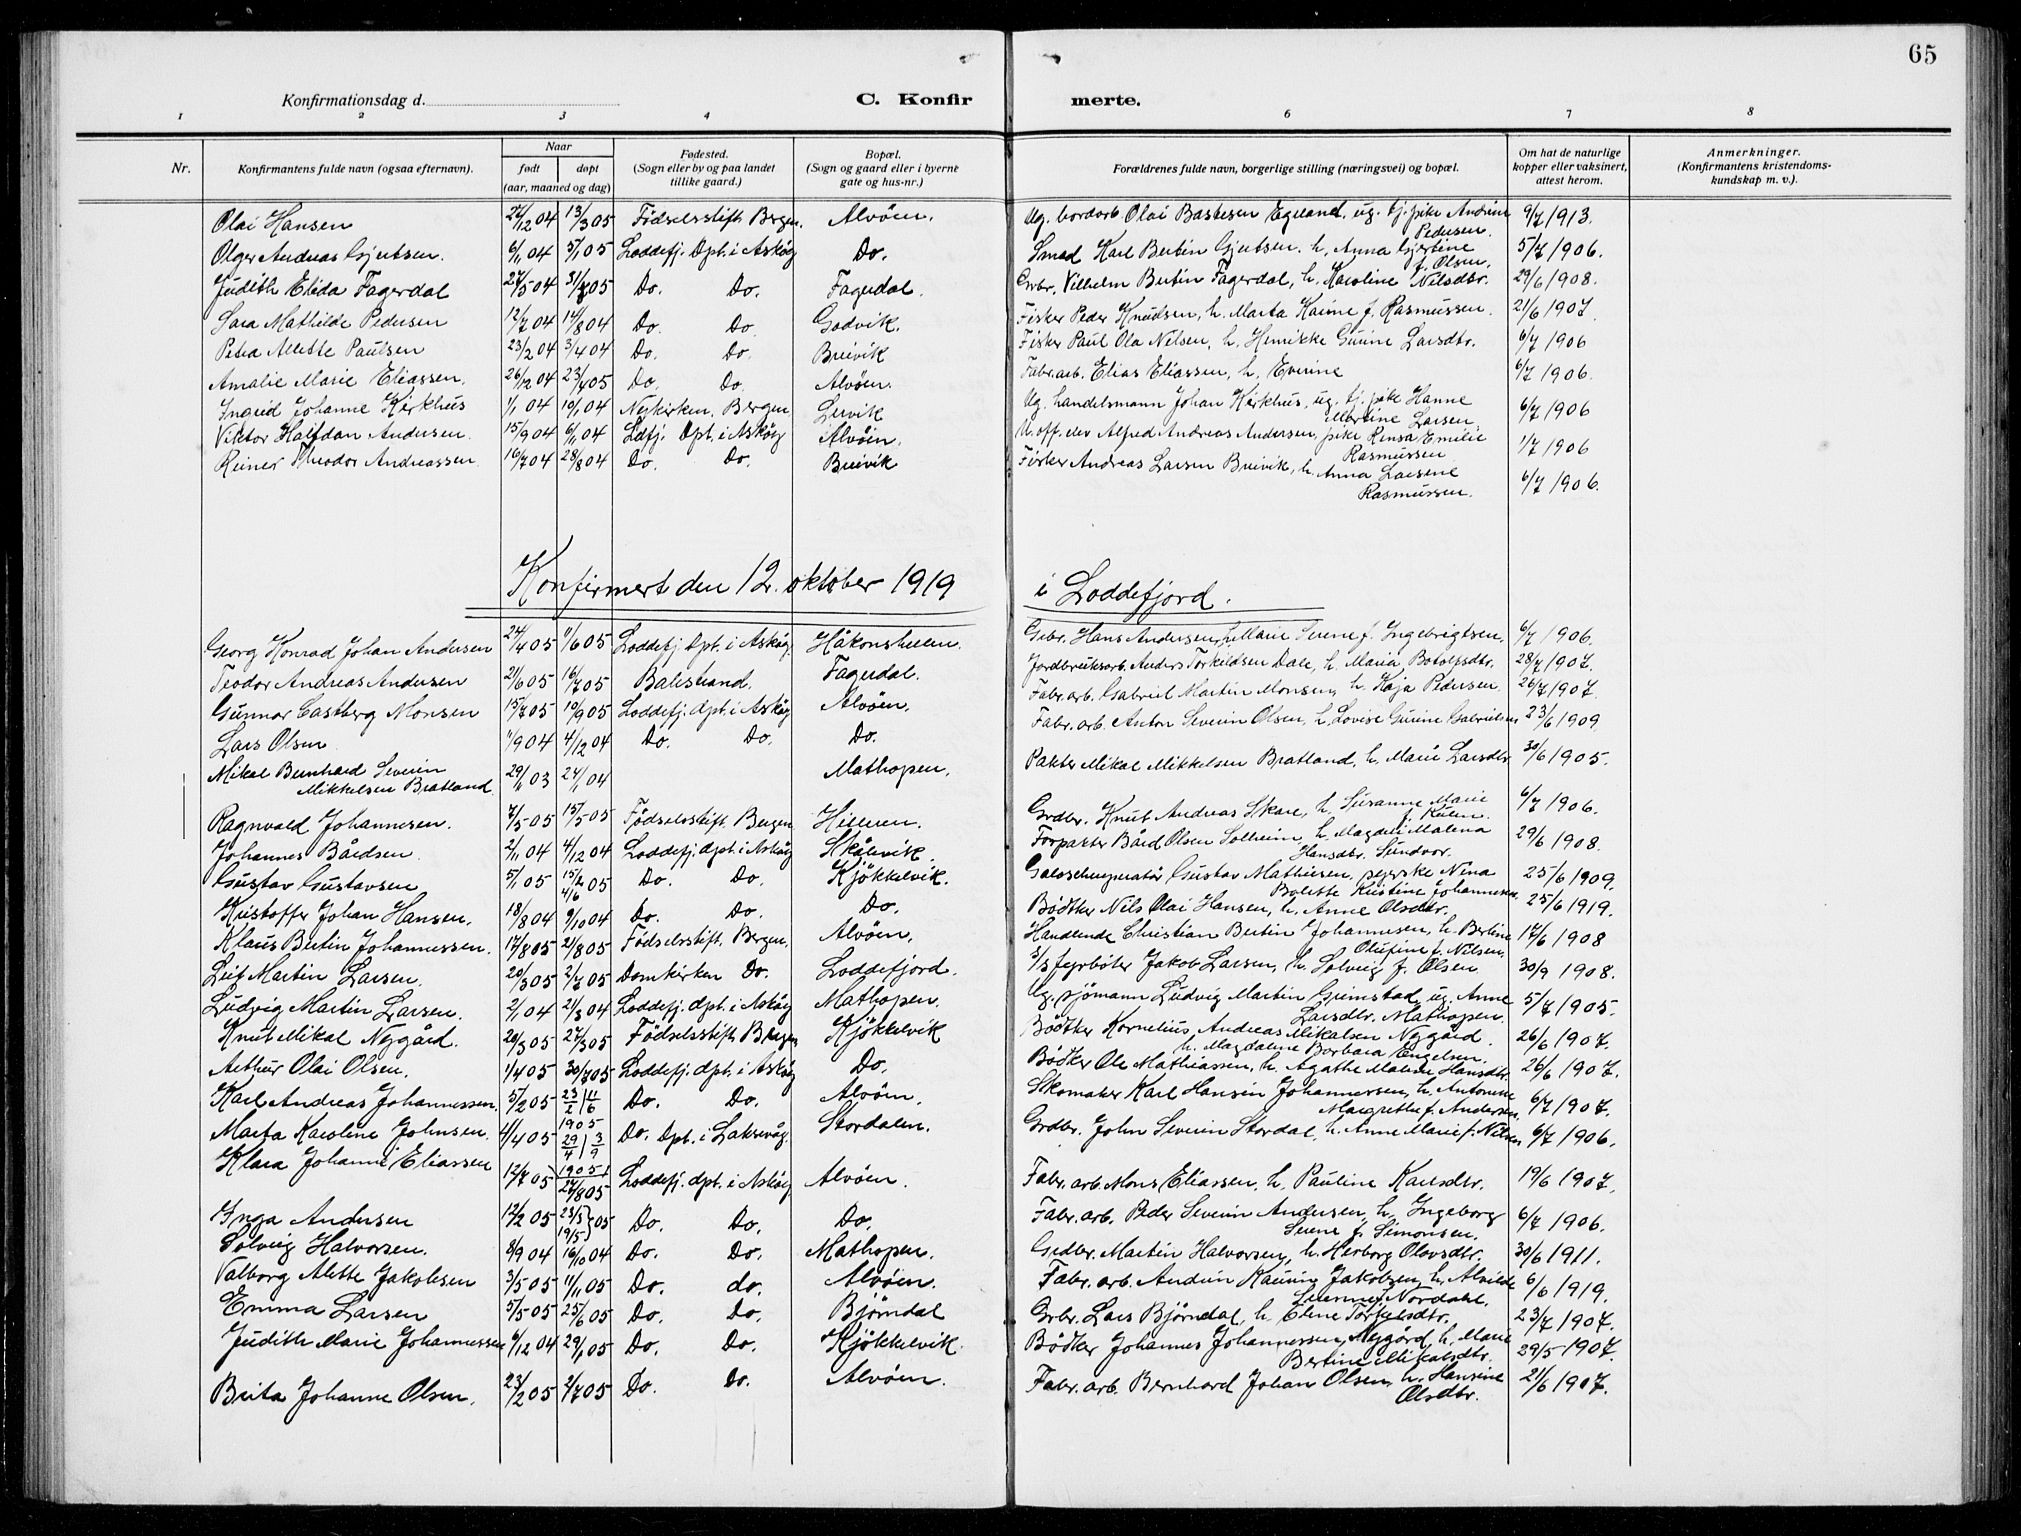 65
Konfirmationsdag d. C. Konfir merte.
1 2 3 4 6 7 8
Nr. Konfirmantens fulde navn (ogsaa efternavn). Naar født døpt (aar, maaned og dag) Fødested. (Sogn eller by og paa landet tillike gaard.) Bopæl. (Sogn og gaard eller i byerne gate og hus-nr.) Forældrenes fulde navn, borgerlige stilling (næringsvei) og bopæl. Om hat de naturlige kopper eller vaksinert, attest herom. Anmerkninger. (Konfirmantens kristendoms-kundskap m. v.).
Olai Hansen 27/12 04 13/3 05 Födselsstift. Bergen. Alvöen. Ug. bordarb. Olai Bastesen Egeland, ug. tj. pike Andrine Pedersen. 9/7 1913.
Olger Andreas Gjertsen. 6/11 04 5/1 05 Loddefj. Dpt. i Askög Do. Smed Karl Bertin Gjertsen. h. Anna Gjertine f. Olsen. 5/7 1906.
Judith Elida Fagerdal 27/5 04 05 Do. Do. Fagerdal. Grbr. Vilhelm Bertin Fagerdal, h. Karoline Nilsdtr. 29/6 1908.
Sara Mathilde Pedersen 12/7 04 14/8 04 Do. Do. Godvik. Fisker Peder Knudsen, h. Marta Karine f. Rasmussen. 21/6 1907.
Petra Alette Paulsen 23/2 04 3/4 04 Do. Do. Breivik Fisker Paul Ola Nilsen, h. Henrikke Gurine Larsdtr. 6/7 1906
Amalie Marie Eliassen. 26/12 04 23/4 05 Do. Do. Alvöen. Fabr. arb. Elias Eliassen, h. Everine 6/7 1906.
Ingrid Johanne Kirkhus 1/1 04 10/1 04 Nykirken, Bergen. Leivik Ug. handelsmann Johan Kirkhus, ug. tj. pike Hanne Martine Larsen. 6/7 1906
Viktor Halfdan Andersen. 15/9 04 6/11 04 Ldfj. Dpt. i Askög Alvöen. U. off. elev Alfred Andreas Andersen, pike Rensa Emilie Rasmussen 1/7 1906
Reiner Theodor Andreassen 16/7 04 28/8 04 Do. Do. Breivik Fisker Andreas Larsen Breivik, h. Anna Larsine Rasmussen. 6/7 1906.
Konfirmert den 12. oktober 1919 i Loddefjord.
Georg Konrad Johan Andersen 24/4 05 11/6 05 Loddefj. Dpt. i Askög. Håkonshellen. Grbr. Hans Andersen, h. Marie Serene f. Ingebrigtsen. 6/7 1906.
Teodor Andreas Andersen 21/6 05 16/7 05 Balestrand. Fagerdal. Jordbruksarb. Anders Torkildsen Dale, h. Maria Botolfsdtr. 28/7 1907.
Gunnar Castberg Monsen 15/7 05 10/9 05 Loddefj. dpt. i Askög Alvöen. Fabr. arb. Gabriel Martin Monsen, h. Kaja Pedersen. 26/7 1907.
Lars Olsen 11/9 04 4/12 04 Do. Do. Do. Fabr. arb. Anton Severin Olsen, h. Lovise Gurine Gabrielsen 23/6 1909.
Mikal Bernhard Severin Mikkelsen Bratland 29/11 03 24/1 04 Mathopen. Pakter Mikal Mikkelsen Bratland, h. Marie Larsdtr. 30/6 1905.
Ragnvald Johannesen. 7/5 05 15/5 05 Födselsstift. Bergen Hilleren. Grdbr. Knut Andreas Skare, h. Susanne Marie 6/7 1906.
Johannes Bårdsen 2/11 04 4/12 04 Loddefj. dpt. i Askög Skålevik. Forpakter Bård Olsen Solheim, h. Magdeli Malena Hansdtr. Sundvor. 29/6 1908.
Gustav Gustavsen 5/1 05 15/2 4/6 05 Do. Do. Kjökkelvik. Gustav Mathiesen, Nina Bolette Kristine Johannesen 25/6 1909.
Kristoffer Johan Hansen. 18/8 04 9/10 04 Do. Do. Do. Bödtker Nils Olai Hansen, h. Anne Olsdtr. 25/6 1919.
Klaus Bertin Johannessen. 17/8 05 21/8 05 Födselsstift. Bergen. Alvöen. Handlende Christian Bertin Johannesen, h. Bertine Olufine f. Nilsen. 17/6 1908
Leif Martin Larsen. 20/3 05 2/7 05 Domkirken Do. Loddefjord. fyrböter Jakob Larsen, h. Solveig f. Olsen. 30/9 1908.
Ludvig Martin Larsen. 2/1 04 21/3 04 Loddefj. dpt. i Askög Mathopen. Ug. sjömann Ludvig Martin Grimstad, ug. Anne Larsdtr. Mathopen. 5/7 1905.
Knut Mikal Nygård. 20/3 05 27/3 05 Födselsstift. Bergen Kjökkelvik Bödtker Kornelius Andreas Mikalsen Nygård. h. Magdalene Barbara Engelsen. 26/6 1907.
Arthur Olai Olsen. 1/4 05 30/7 05 Loddefj. dpt. i Askög Do. Bödker Ole Mathiassen, h. Agathe Malene Hansdtr. 26/6 1907.
Karl Andreas Johannessen. 5/2 05 23/2 4/6 1905 Do. Do. Alvöen. Skomaker Karl Hansen Johannesen, h. Antonine Margrethe f. Andersen. 6/7 1907.
Marta Karoline Johnsen. 4/4 05 29/4 3/9 1905 Do. Dpt. i Laksevåg Stordalen. Grdbr. John Severin Stordal, h. Anne Marie f. Nilsen 6/7 1906.
Klara Johanne Eliassen 12/7 05 27/8 05 Loddefj. dpt. i Askög Alvöen. Fabr. arb. Mons Eliassen, h. Pauline Karlsdtr. 19/6 1907.
Inga Andersen 12/2 05 23/3 19/5 05 Do. Do. Do. Fabr. arb. Peder Severin Andersen, h. Ingeborg Serene f. Simonsen. 6/7 1906.
Solveig Halvorsen. 8/9 04 16/10 04 Do. Do. Mathopen. Grdbr. Martin Halvorsen, h. Herborg Olavsdtr. 30/6 1911.
Valborg Alette Jakobsen 3/5 05 11/11 05 Do. do. Alvöen. Fabr. arb. Andrin Kaurin Jakobsen, h. Alvilde Nordahl. 6/6 1919.
Emma Larsen 5/5 05 25/6 05 Do. Do. Bjørndal Grbr. Lars Bjørndal, h. Eline Torjulsdtr. 23/7 1907.
Judith Marie Johannessen 6/12 04 29/1 05 Do. Do. Kjökkelvik. Bödker Johannes Johannessen Nygård h. Marie Bertine Mikalsdtr. 29/5 1907.
Brita Johanne Olsen. 23/2 05 2/7 05 Do. Do. Alvöen. Fabr. arb. Bernhard Johan Olsen, h. Hansine Olsdtr. 21/6 1907.